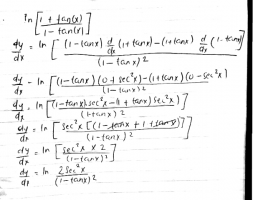 ln [ (1 + tan(x)) / (1 - tan(x)) ]
dy/dx = ln [ ((1-tanx) d/dx (1+tanx) - (1+tanx) d/dx (1-tanx)) / (1-tanx)² ]
dy/dx = ln [ ((1-tanx)(0+sec²x) - (1+tanx)(0-sec²x)) / (1-tanx)² ]
dy/dx = ln [ ((1-tanx)sec²x - (1+tanx)sec²x) / (1-tanx)² ]
dy/dx = ln [ sec²x [(1-tanx + 1+tanx)] / (1-tanx)² ]
dy/dx = ln [ (sec²x x 2) / (1-tanx)² ]
dy/dx = ln 2sec²x / (1-tanx)²